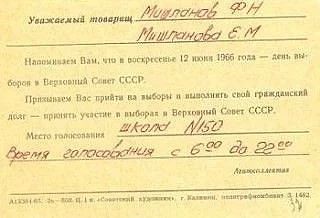 Уважаемый товарищ Мишланов Ф Н
Мишланова Е. М
Напоминаем Вам, что в воскресенье 12 июня 1966 года — день вы-
боров в Верховный Совет СССР.
Призываем Вас прийти на выборы и выполнить свой гражданский
долг — принять участие в выборах в Верховный Совет СССР.
Место голосования школа N150
Время голосования с 6 00 до 22 00
Агитколлектив
«Советский художник», г. Калинин, полиграфкомбинат З. 1482